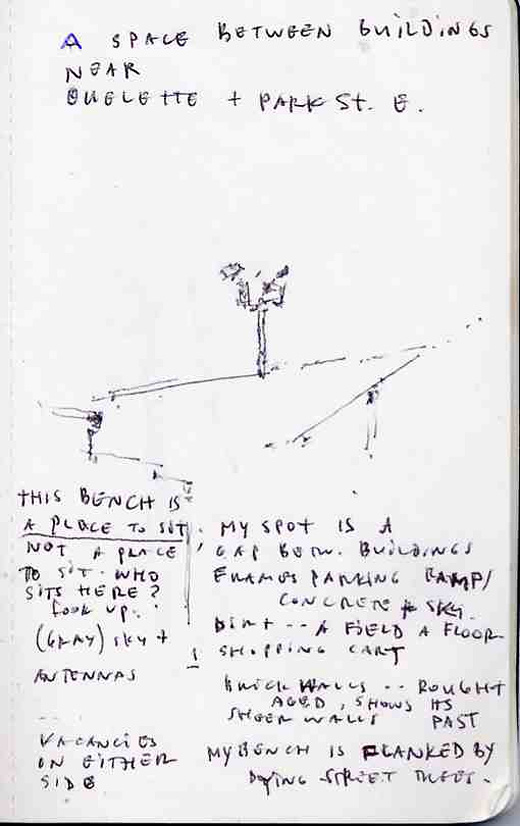 A SPACE BETWEEN BUILDINGS
NEAR
OUELETTE + PARK St. E.
THIS BENCH IS
A PLACE TO SIT.
NOT A PLACE
TO SIT. WHO
SITS HERE?
LOOK UP.
(GRAY) SKY +
ANTENNAS
VACANCIES
ON EITHER
SIDE
MY SPOT IS A
GAP BETW. BUILDINGS
FRAMES PARKING RAMP/
CONCRETE & SKY.
DIRT -- A FIELD A FLOOR
SHOPPING CART
BRICK WALLS -- ROUGHT
AGED, SHOWS ITS
SHEER WALLS PAST
MY BENCH IS FLANKED BY
DYING STREET TREES.